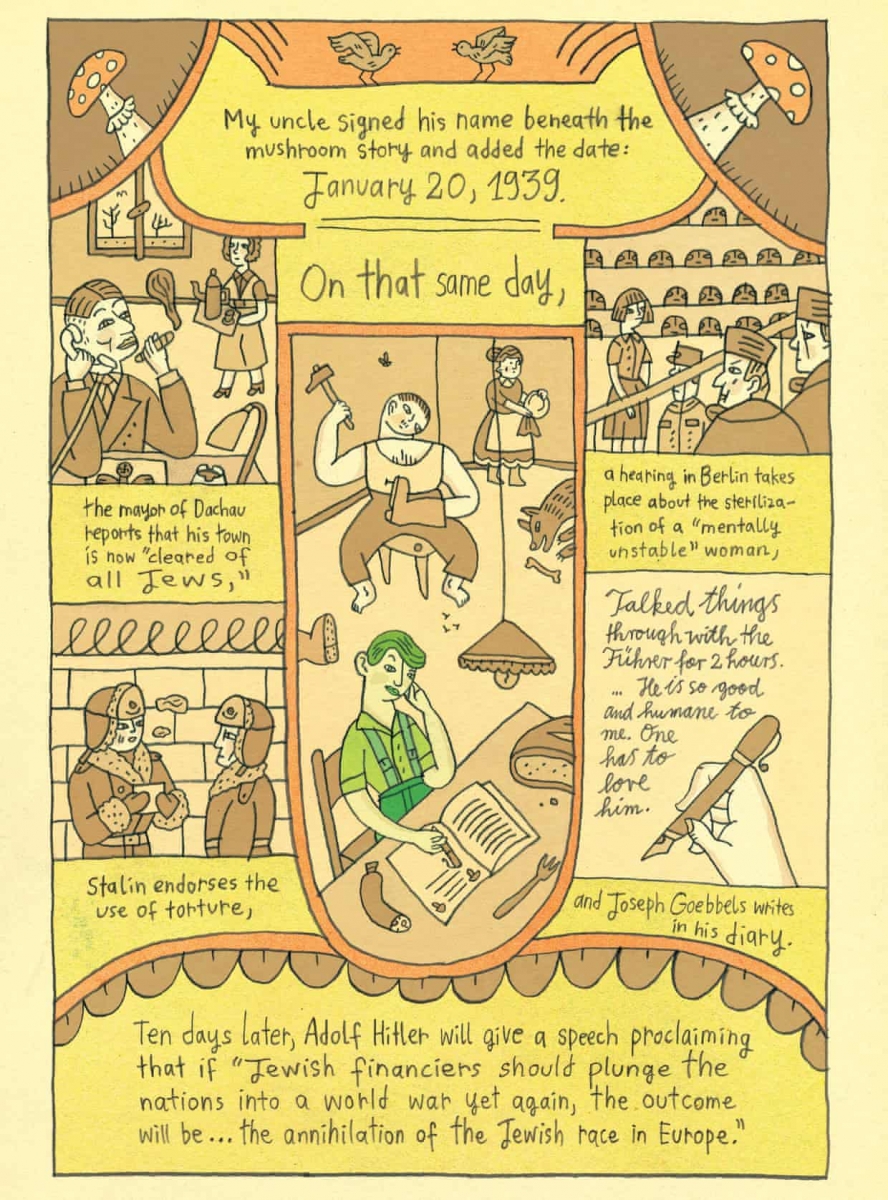 My uncle signed his name beneath the
mushroom story and added the date:
January 20, 1939.
On that same day,
the mayor of Dachau
reports that his town
is now "cleared of
all Jews,"
a hearing in Berlin takes
place about the steriliza-
tion of a "mentally
unstable" woman,
Stalin endorses the
use of torture,
Talked things
through with the
Führer for 2 hours.
... He is so good
and humane to
me. One
has to
love
him.
and Joseph Goebbels writes
in his diary.
Ten days later, Adolf Hitler will give a speech proclaiming
that if "Jewish financiers should plunge the
nations into a world war yet again, the outcome
will be... the annihilation of the Jewish race in Europe."